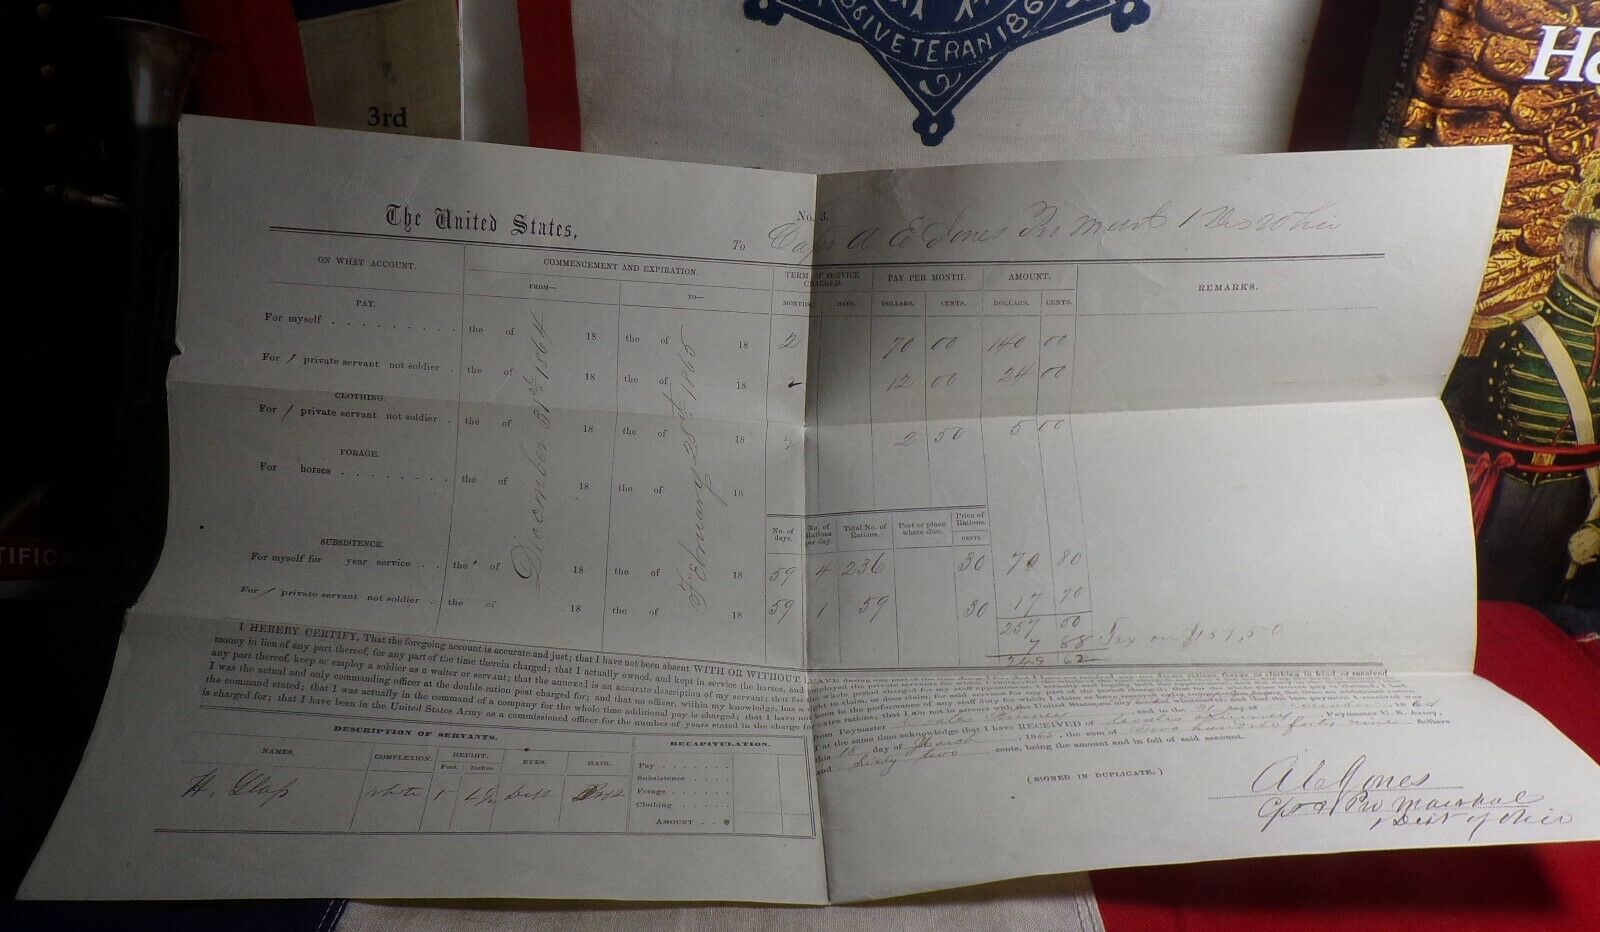 1861 VETERAN 186
3rd
He
TIFICATION
No. 3.
The United States,
To Capt A E Jones Pro Marshal 1 Dist Ohio
ON WHAT ACCOUNT.
COMMENCEMENT AND EXPIRATION.
TERM OF SERVICE CHARGED.
PAY PER MONTH.
AMOUNT.
REMARKS.
FROM—
TO—
MONTHS.
DAYS.
DOLLARS.
CENTS.
DOLLARS.
CENTS.
December 31st 1864
February 28th 1865
PAY.
For myself . . . . . . . . . the of 18 the of 18 2 70 00 140 00
For 1 private servant not soldier . the of 18 the of 18 2 12 00 24 00
CLOTHING.
For 1 private servant not soldier . the of 18 the of 18 2 2 50 5 00
FORAGE.
For horses . . . . . . . . the of 18 the of 18
No. of days.
No. of Rations per day.
Total No. of Rations.
Post or place where due.
Price of Rations.
CENTS.
SUBSISTENCE.
For myself for year service . . the of 18 the of 18 59 4 236 30 70 80
For 1 private servant not soldier . the of 18 the of 18 59 1 59 30 17 70
257 50
7 88 Tax on $157,50
249 62
I HEREBY CERTIFY, That the foregoing account is accurate and just; that I have not been absent WITH OR WITHOUT LEAVE
money in lieu of any part thereof, for any part of the time therein charged; that I actually owned, and kept in service the horses, and employed the private
any part thereof, keep or employ a soldier as a waiter or servant; that the annexed is an accurate description of my servant; that for the whole period charged for my staff
I was the actual and only commanding officer at the double ration post charged for; and that no officer, within my knowledge, has a right to claim, or does claim, for said
the command stated; that I was actually in the command of a company for the whole time additional pay is charged; that I have not been in the performance of any staff duty for
is charged for; that I have been in the United States Army as a commissioned officer for the number of years stated in the charge for extra rations; that I am not in arrears with the United States, on any account whatsoever
from Paymaster
I at the same time acknowledge that I have RECEIVED of Paymaster U. S. Army,
this 18 day of March, 1865, the sum of Two hundred forty nine dollars
and Sixty two cents, being the amount and in full of said account.
(SIGNED IN DUPLICATE.)
A E Jones
Capt & Pro Marshal
1 Dist of Ohio
DESCRIPTION OF SERVANTS.
NAMES.
COMPLEXION.
HEIGHT.
Feet.
Inches.
EYES.
HAIR.
H. white 5
RECAPITULATION.
Pay . . . . . . .
Subsistence . . . .
Forage . . . . . .
Clothing . . . . .
AMOUNT . .